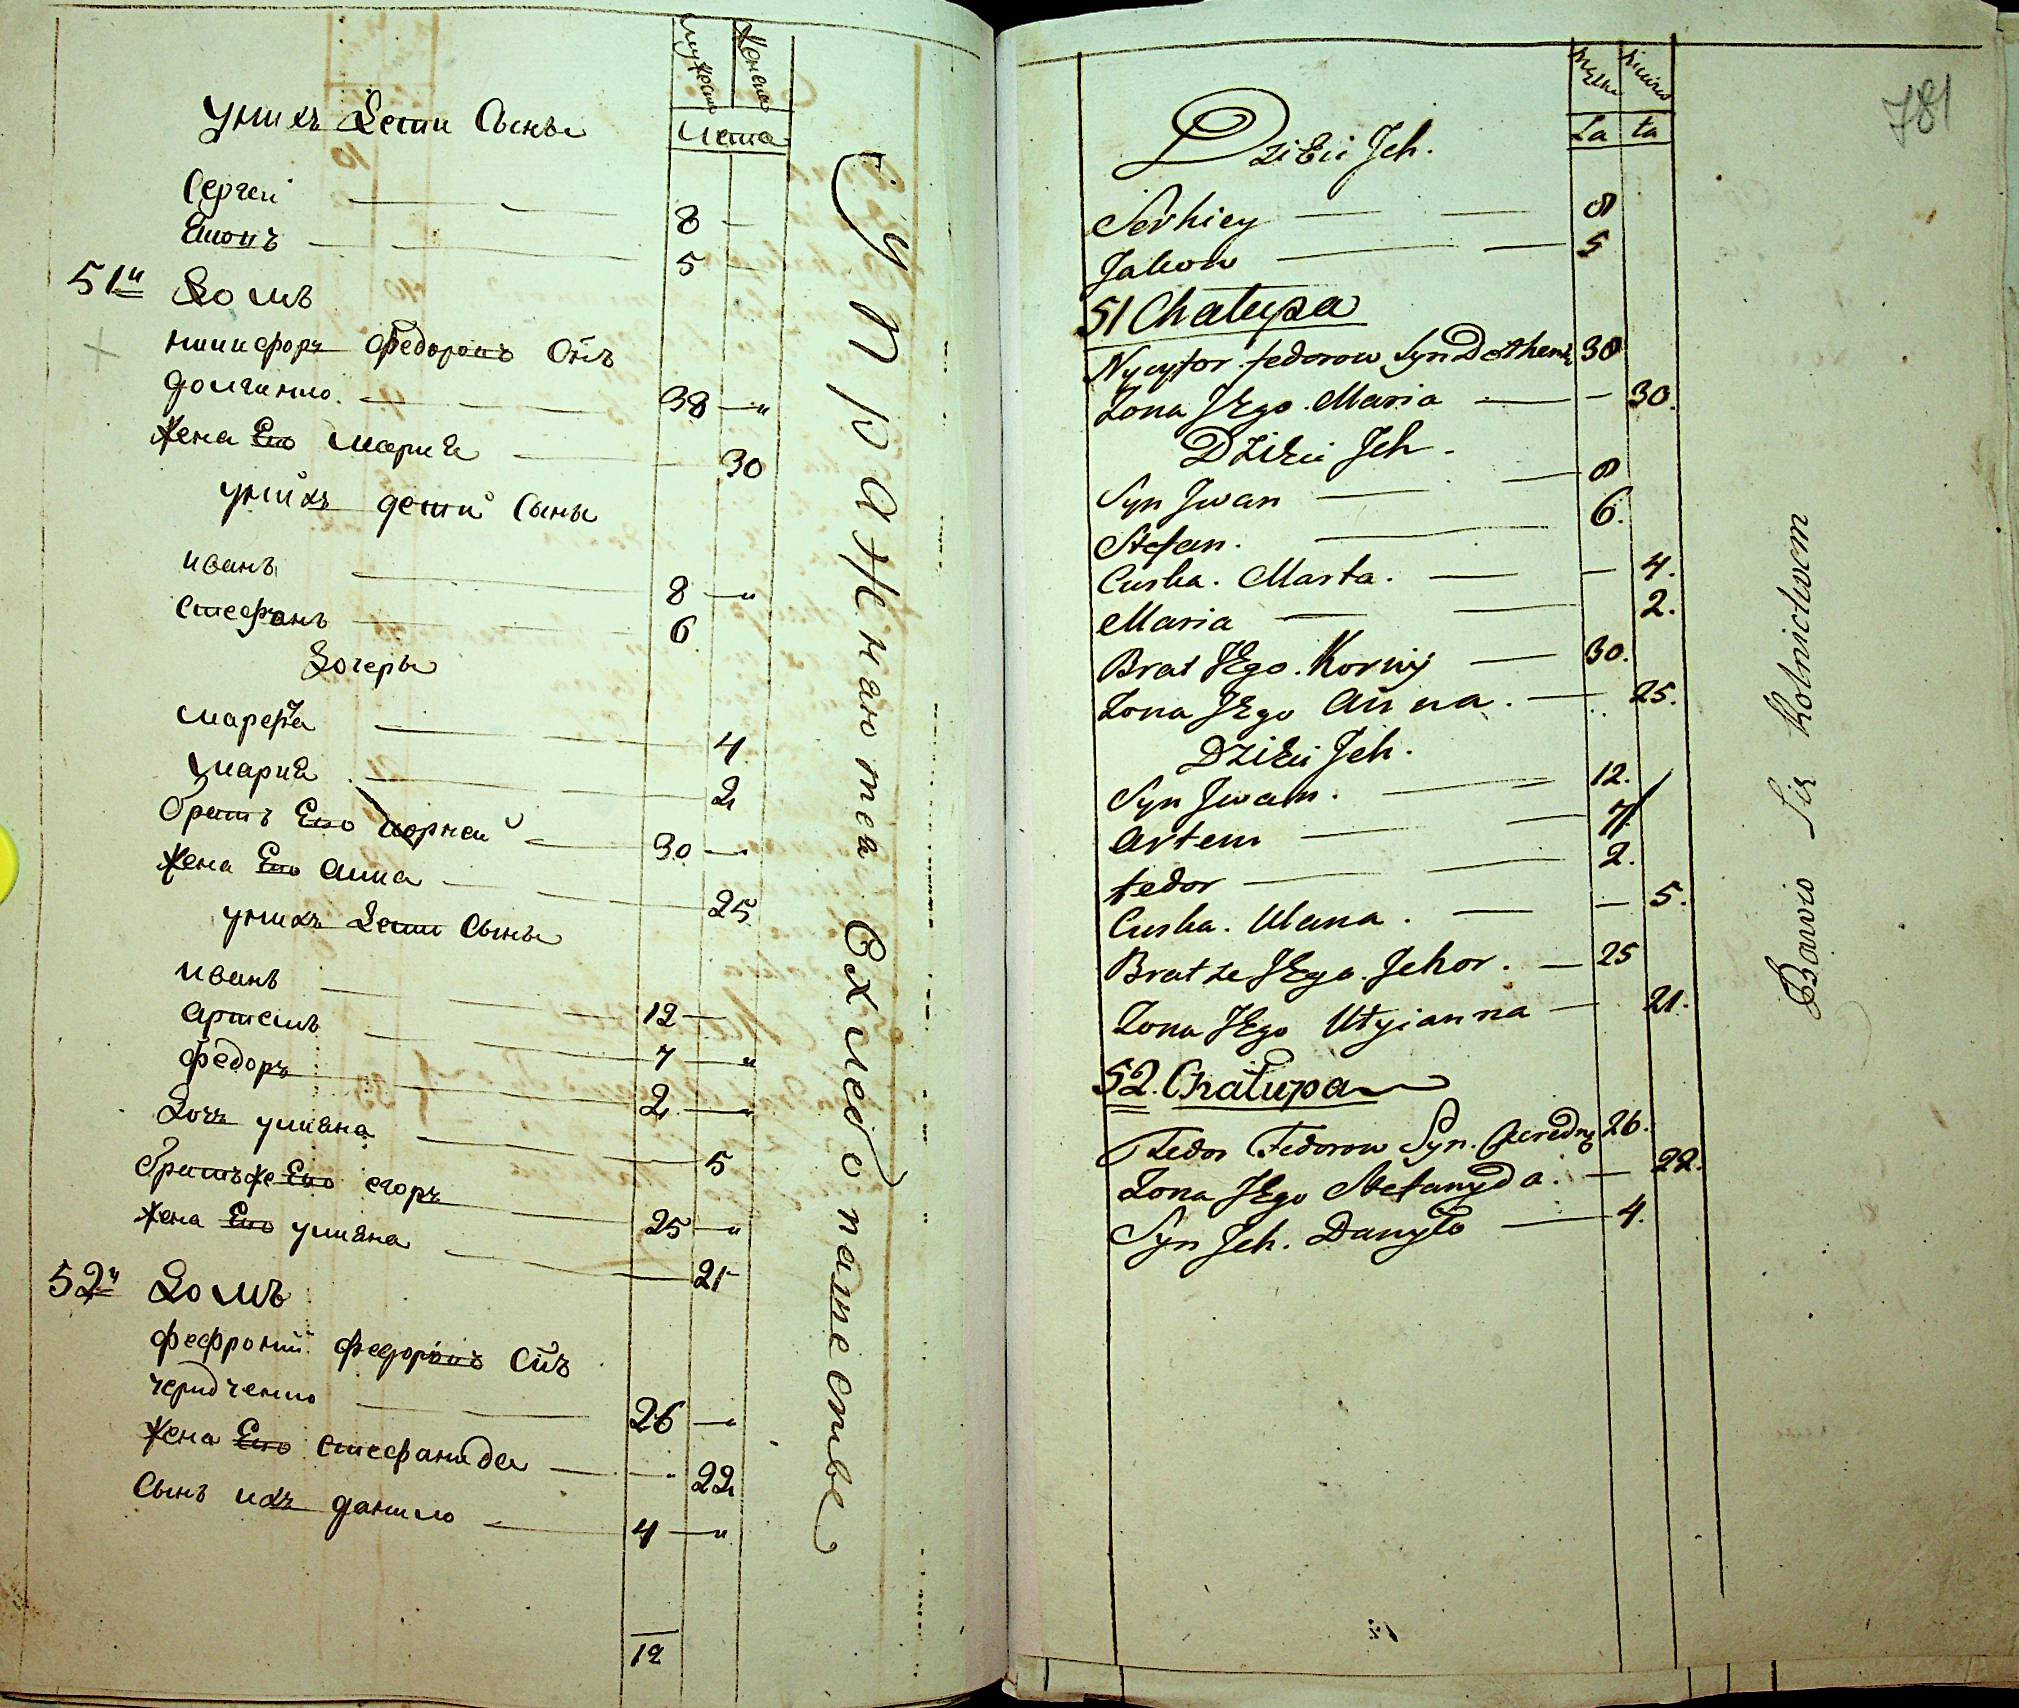 Мужеска
Женска
Лета
У них Дети Сыны
Сергей 8
Яковъ 5
51й Домъ
никифоръ Федоровъ Снъ
долгинко. 38
Жена Его мария 30
у них дети Сыны
иванъ 8
Стефанъ 6
Дочеры
марфа 4
мария 2
братъ Его корней 30
Жена Его анна 25
у них Дети Сыны
иванъ 12
артемъ 7
федоръ 2
Дочь улияна 5
братъ же Его егоръ 25
Жена Его улияна 21
52й Домъ
федоровъ Снъ
26
Жена Его стефанида 22
Сынъ ихъ данило 4
12
Супражняются в хлебопашестве
781
Męzka
La ta
Dzieci Jch.
Serhiey 8
Jakow 5
51 Chałupa
Nycyfor fedorow Syn 38
Zona JEgo. Maria 30.
Dzieci Jch.
Syn Jwan 8
Stefan. 6.
Curka. Marta. 4.
Maria 2.
Brat JEgo. Korniy 30.
Zona JEgo Anna. 25.
Dzieci Jch.
Syn Jwan. 12.
Artem 7
fedor 2.
Curka. Ulana. 5.
Brat ze JEgo. Jehor. 25
Zona JEgo Ulyianna 21.
52. Chałupa
Fedor Fedorow Syn. 26.
Zona JEgo Stefanyda. 22.
Syn Jch. Danyło 4.
Bawio Się Rolnictwem